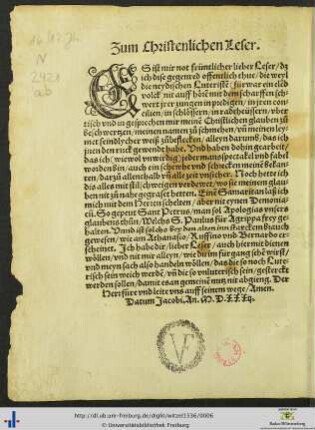 Zum Christenlichen Leser.
ES ist mir not freüntlicher lieber Leser/ dz
ich dise gegenred offentlich thue/ die weyl
die neydischen Luteristē/ für war ein edel
volck nit auff hörē mit dem scharffen sch
wert jrer zungen in predigen/ in jren con
cilien/ in schlössern/ in radtheüsern/ vber
tisch vnd in gesprochen mir meine Christlichen glauben zů
beschwertzen/ meinen namen zů schmehen/ vñ meinen ley-
met feindlycher weyß zübeflecken/ alleyn darumb/ das ich
jnen den ruck gewendt habe. Vnd haben dohin gearbeit/
das ich/ wiewol vnwirdig/ jedermans spectakel vnd fabel
worden bin/ auch ein schenhe vnd schrecken meinē bekan-
ten/ dazů allenthalb vñ alle zeit vnsicher. Noch hette ich
dis alles mit stilschweigen verdewet/ wo sie meinem glau
ben nit zů nahe gegraset hetten. Ein Samaritan laß ich
mich mit dem Herren schelten/ aber nit eynen Demonia-
cū. So gepeut Sanct Petrus/ man sol Apologiā vnsers
glaubens thůn/ Welchs S. Paulus für Agrippa frey ge-
halten. Vnnd ist solchs bey den alten inn starckem brauch
gewesen/ wie am Athanasio/ Ruffino vnd Bernardo er-
scheinet. Ich habe dir/ lieber Leser/ auch hiermit dienen
wöllen/ vnd nit mir alleyn/ wie du im fürgang sehē wirst/
vnd meyn sach also handeln wöllen/ das die so noch Lute-
risch sein weich werdē/ vñ die so vnluterisch sein/ gesterckt
werden sollen/ damit es an gemeine nutz nit abgieng. Der
Herr füre vnd leite vns auff seinem wege/ Amen.
Datum Jacobi, An. M. D. XXXij.
VF
http://dl.ub.uni-freiburg.de/diglit/witzel1536/0006
© Universitätsbibliothek Freiburg
Baden-Württemberg